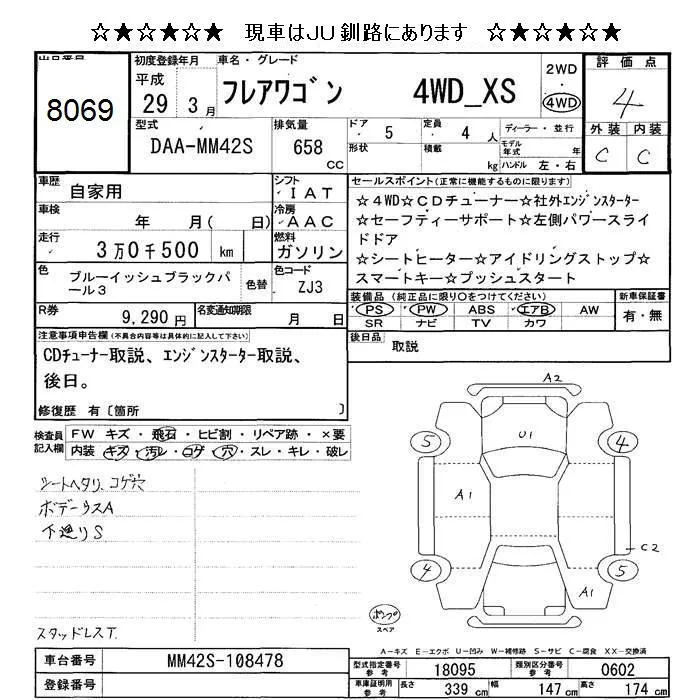 ☆★☆★☆★☆★ 現車はJU釧路にあります ☆★☆★☆★☆
出品番号 初度登録年月 車名・グレード 2WD・4WD 評価点
8069 平成 29 3月 フレアワゴン 4WD_XS 4
型式 排気量 ドア・形状 定員・積載 ディーラー・並行 外装 内装
DAA-MM42S 658 CC 5 4人 kg モデル年式 年 ハンドル 左・右 C C
車歴 自家用 シフト IAT セールスポイント(正常に機能するものに限ります)
車検 年 月( 日) 冷房 AAC ☆4WD☆CDチューナー☆社外エンジンスターター
☆セーフティーサポート☆左側パワースライ
走行 3万0千500 km 燃料 ガソリン ドドア
☆シートヒーター☆アイドリングストップ☆
色 ブルーイッシュブラックパール3 色替 色コード ZJ3 スマートキー☆プッシュスタート
装備品(純正品に限り○をつけてください) 新車保証書
R券 9,290円 名変通知期限 月 日 PS・PW・ABS・エアB・AW 有・無
SR ナビ TV カワ
注意事項申告欄(不具合内容等は具体的に記入して下さい) 後日品 取説
CDチューナー取説、エンジンスターター取説、
後日。
修復歴 有〔箇所 〕
検査員記入欄 FW キズ・飛石・ヒビ割・リペア跡・×要
内装 キズ・汚レ・コゲ・穴・スレ・キレ・破レ
シートヘタリ、コゲ穴
ボデーウスA
下廻りS
スタッドレスT.
A2
5 U1 4
A1
C2
4 5
A1
ポンプ
スペア
A-キズ E-エクボ U-凹み W-補修跡 S-サビ C-腐食 XX-交換済
車台番号 MM42S-108478 型式指定番号 参考 18095 類別区分番号 参考 0602
登録番号 車庫証明用 参考 長さ 339 cm 幅 147 cm 高さ 174 cm